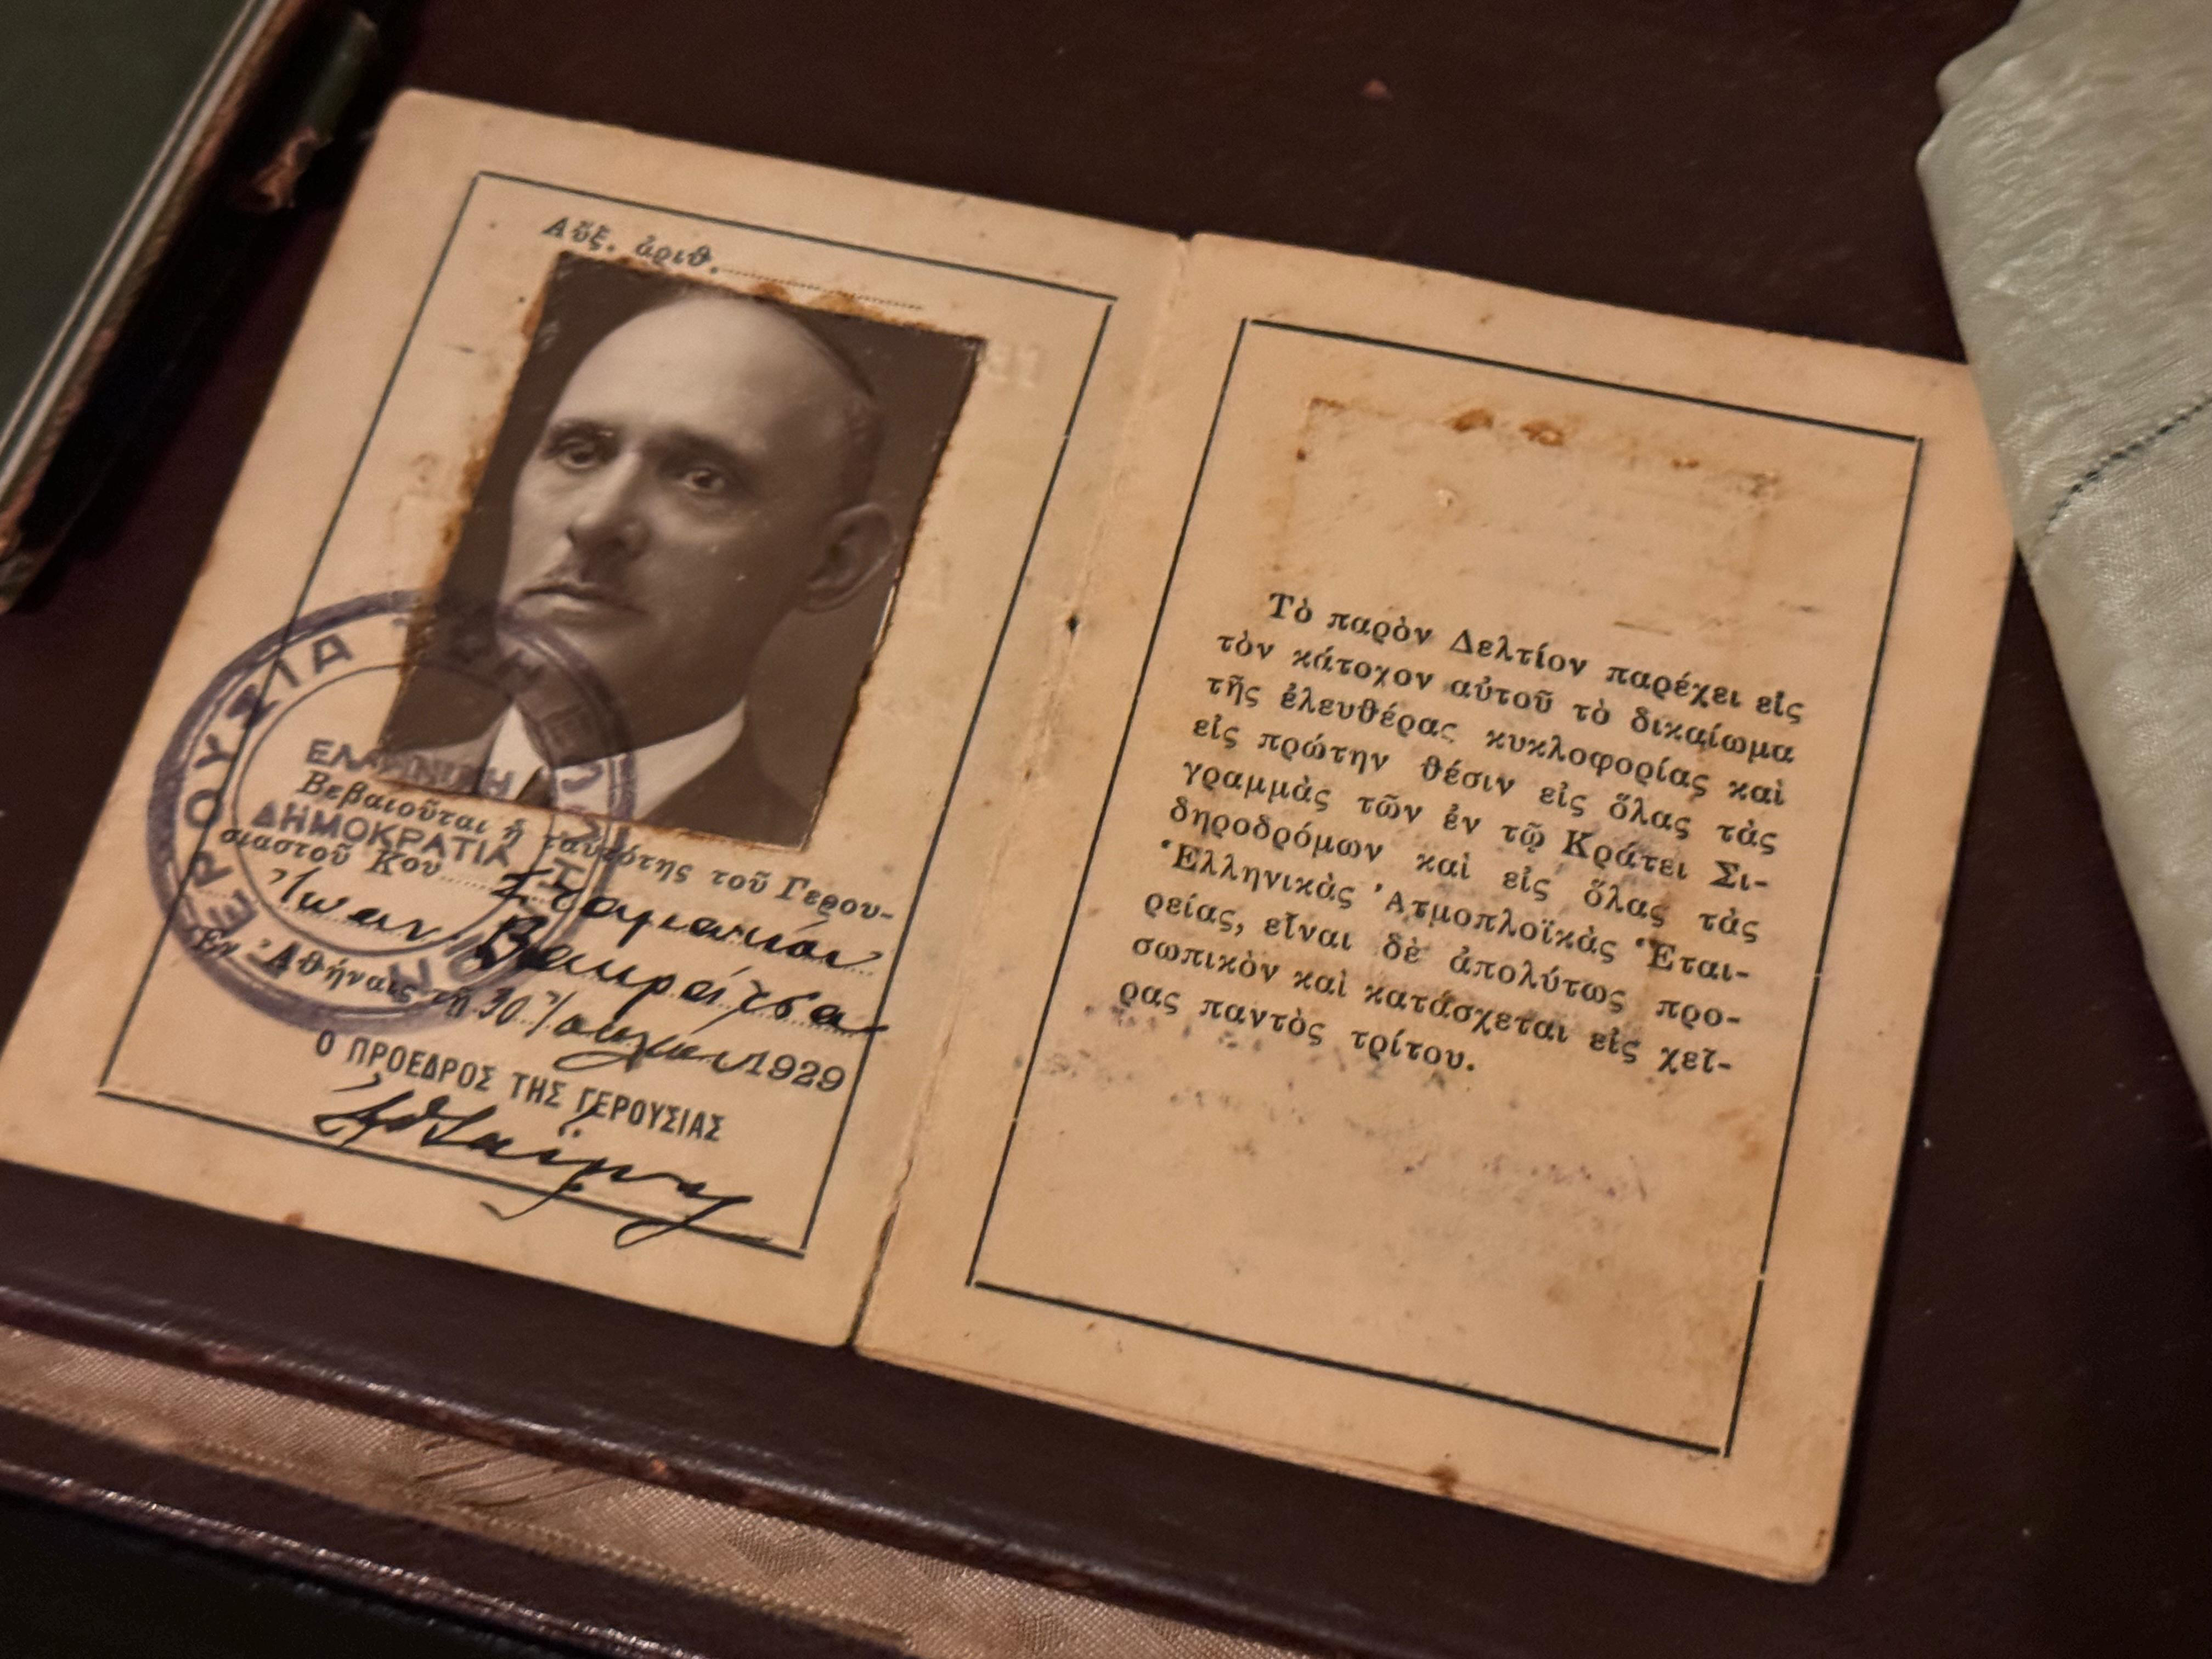 Αὔξ. ἀριθ.
ΓΕΡΟΥΣΙΑ ΤΩΝ
ΕΛΛΗΝΙΚΗ
ΔΗΜΟΚΡΑΤΙΑ
Βεβαιοῦται ἡ ταὐτότης τοῦ Γερου-
σιαστοῦ Κου Σταματίου
Ἰωαν.
Ἐν Ἀθήναις τῇ 30 1929
Ο ΠΡΟΕΔΡΟΣ ΤΗΣ ΓΕΡΟΥΣΙΑΣ
Τὸ παρὸν Δελτίον παρέχει εἰς
τὸν κάτοχον αὐτοῦ τὸ δικαίωμα
τῆς ἐλευθέρας κυκλοφορίας καὶ
εἰς πρώτην θέσιν εἰς ὅλας τὰς
γραμμὰς τῶν ἐν τῷ Κράτει Σι-
δηροδρόμων καὶ εἰς ὅλας τὰς
Ἑλληνικὰς Ἀτμοπλοϊκὰς Ἑται-
ρείας, εἶναι δὲ ἀπολύτως προ-
σωπικὸν καὶ κατάσχεται εἰς χεῖ-
ρας παντὸς τρίτου.